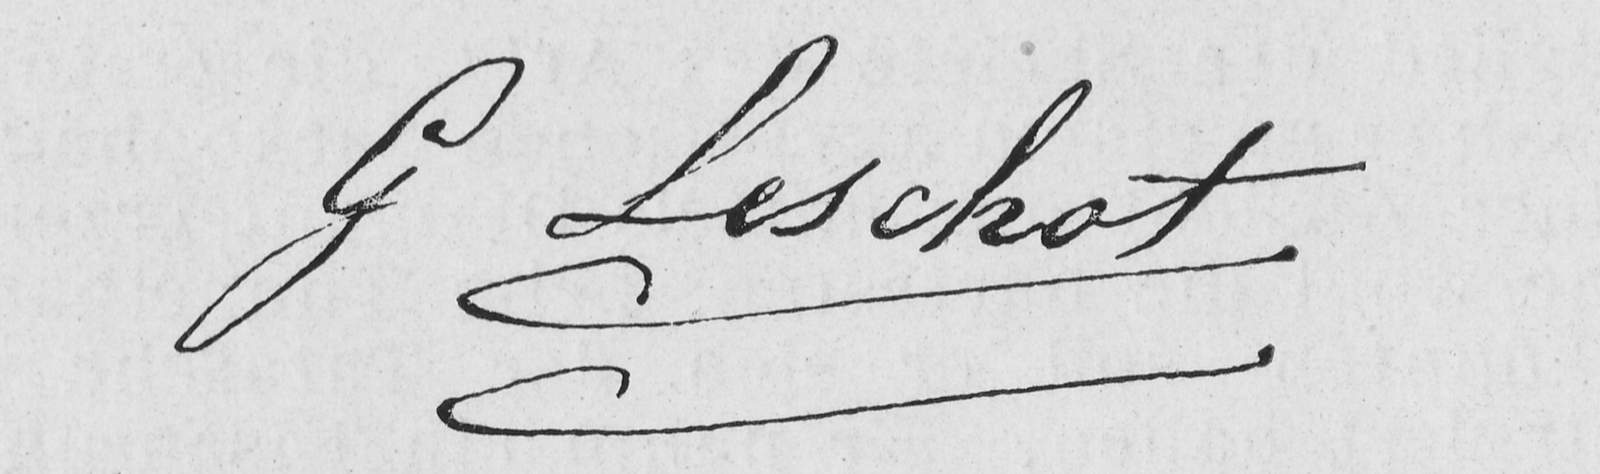 G Leschot